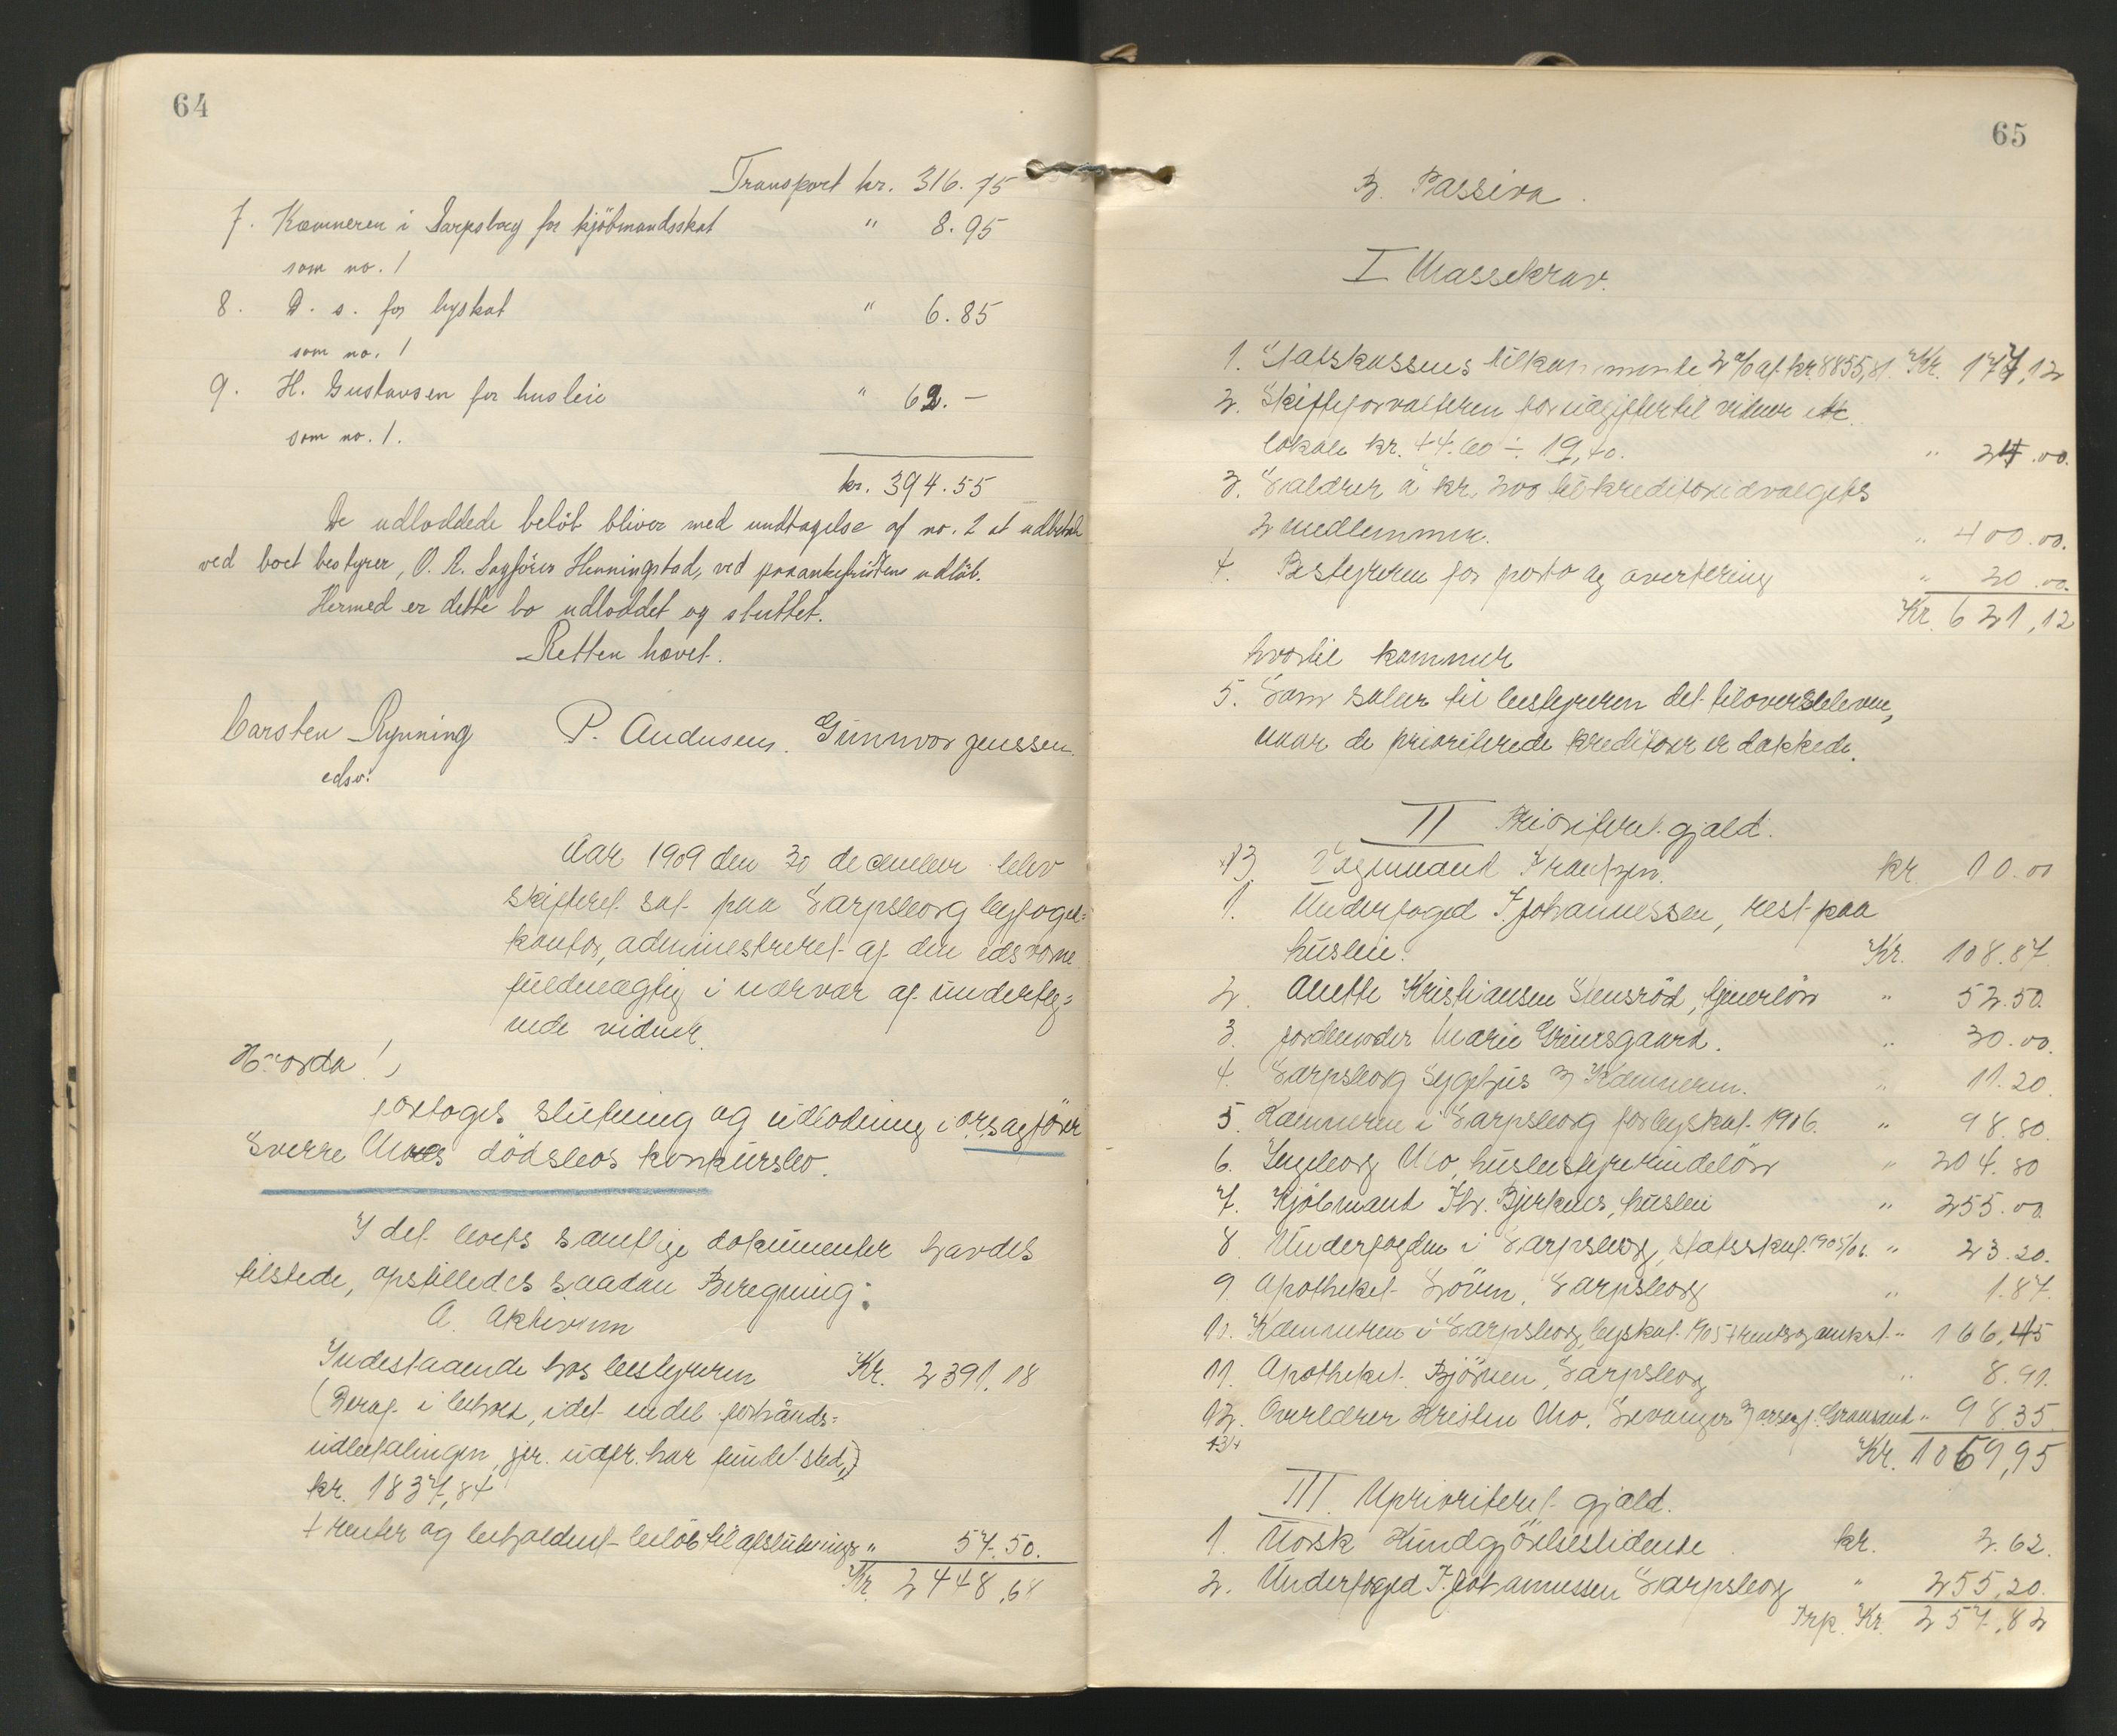 64
Transport kr. 316.75
7. Kæmneren i Sarpsborg for kjöbmandsskat " 8.95
som no. 1
8. D. s. for byskat " 6.85
som no. 1
9. H. Gustavsen for husleie " 62.-
som no. 1.
kr. 394.55
De udloddede belöb bliver med undtagelse af no. 2 at udbetale
ved boets bestyrer, O. R. Sagförer Henningstad, ved paaankefristens udlöb.
Hermed er dette bo udloddet og sluttet.
Retten hævet.
Carsten Rynning P. Andersen. Gunnvor Jenssen
edsv.
Aar 1909 den 30 december blev
skifteret sat paa Sarpsborg byfoged=
kontor, administreret af den edsvorne
fuldmægtig i nærvær af underteg=
nede vidner.
Hvorda!
foretoges slutning og udlodning i orsagförer
Sverre Moes dödsbos konkursbo.
I det boets samtlige dokumenter havdes
tilstede, opstilledes saadan Beregning:
A. Aktivum
Indestaaende hos bestyreren Kr. 2391.18
(Beraf i behold, idet endel forhånds=
udbetalinger, jfr. udfr. har fundet sted,)
kr. 1837,84
+ renter og beholdent belöb til afslutning " 57.50.
Kr. 2448,68
65
B. Passiva.
I Massekrav.
1. Statskassens tilkommende 2 % af kr. 8855,81. Kr. 177,12
2. Skifteforvalteren for udgifter til vidner etc
lokale kr. 44.60 ÷ 19,40. " 24.00.
3. Salærer à kr. 200 til kreditorudvalgets
2 medlemmer. " 400.00.
4. Bestyreren for porto og avertering " 20.00.
Kr. 621,12
hvortil kommer
5. Som salær til bestyreren det tiloversblevne,
naar de prioriterede kreditorer er dækkede.
II Prioriteret gjæld.
13. Vognmand Frantzen. kr. 10.00
1. Underfoged J. Johannessen, rest paa
husleie. Kr. 108.87.
2. Anette Kristiansen Stensröd, tjenerlön " 52.50.
3. Jordemoder Marie Grimsgaard. " 30.00.
4. Sarpsborg Sygehus v/ Kæmneren. " 11.20.
5. Kæmneren i Sarpsborg for byskat 1906. " 98.80.
6. Ingeborg Mo, husbestyrerindelön " 204.80
7. Kjöbmand Thv. Bjerknes, husleie " 255.00
8. Underfogden i Sarpsborg, statsskat 1905/06. " 23.20.
9. Apotheket Löven, Sarpsborg " 1.87.
10. Kæmneren i Sarpsborg, byskat 1905 + renter og omkst. " 166,45
11. Apotheket Björnen, Sarpsborg " 8.91.
12. Overlærer Kristen Mo, Levanger v/ orsagf. " 98.35
Kr. 1069,95
III. Uprioriteret gjæld.
1. Norsk Kundgjörelsestidende kr. 2.62.
2. Underfoged J. Johannessen Sarpsborg " 255,20.
Trp. Kr. 257,82